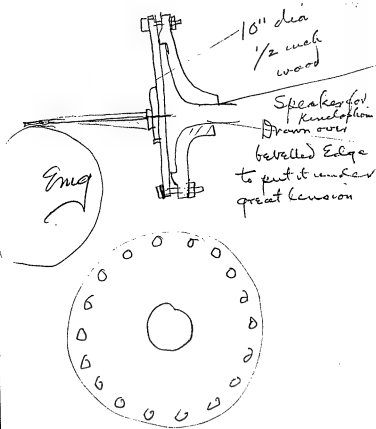 10" dia
1/2 inch
wood
Speaker for
Kinetophone
Drawn over
bevelled Edge
to put it under
great tension
Eng